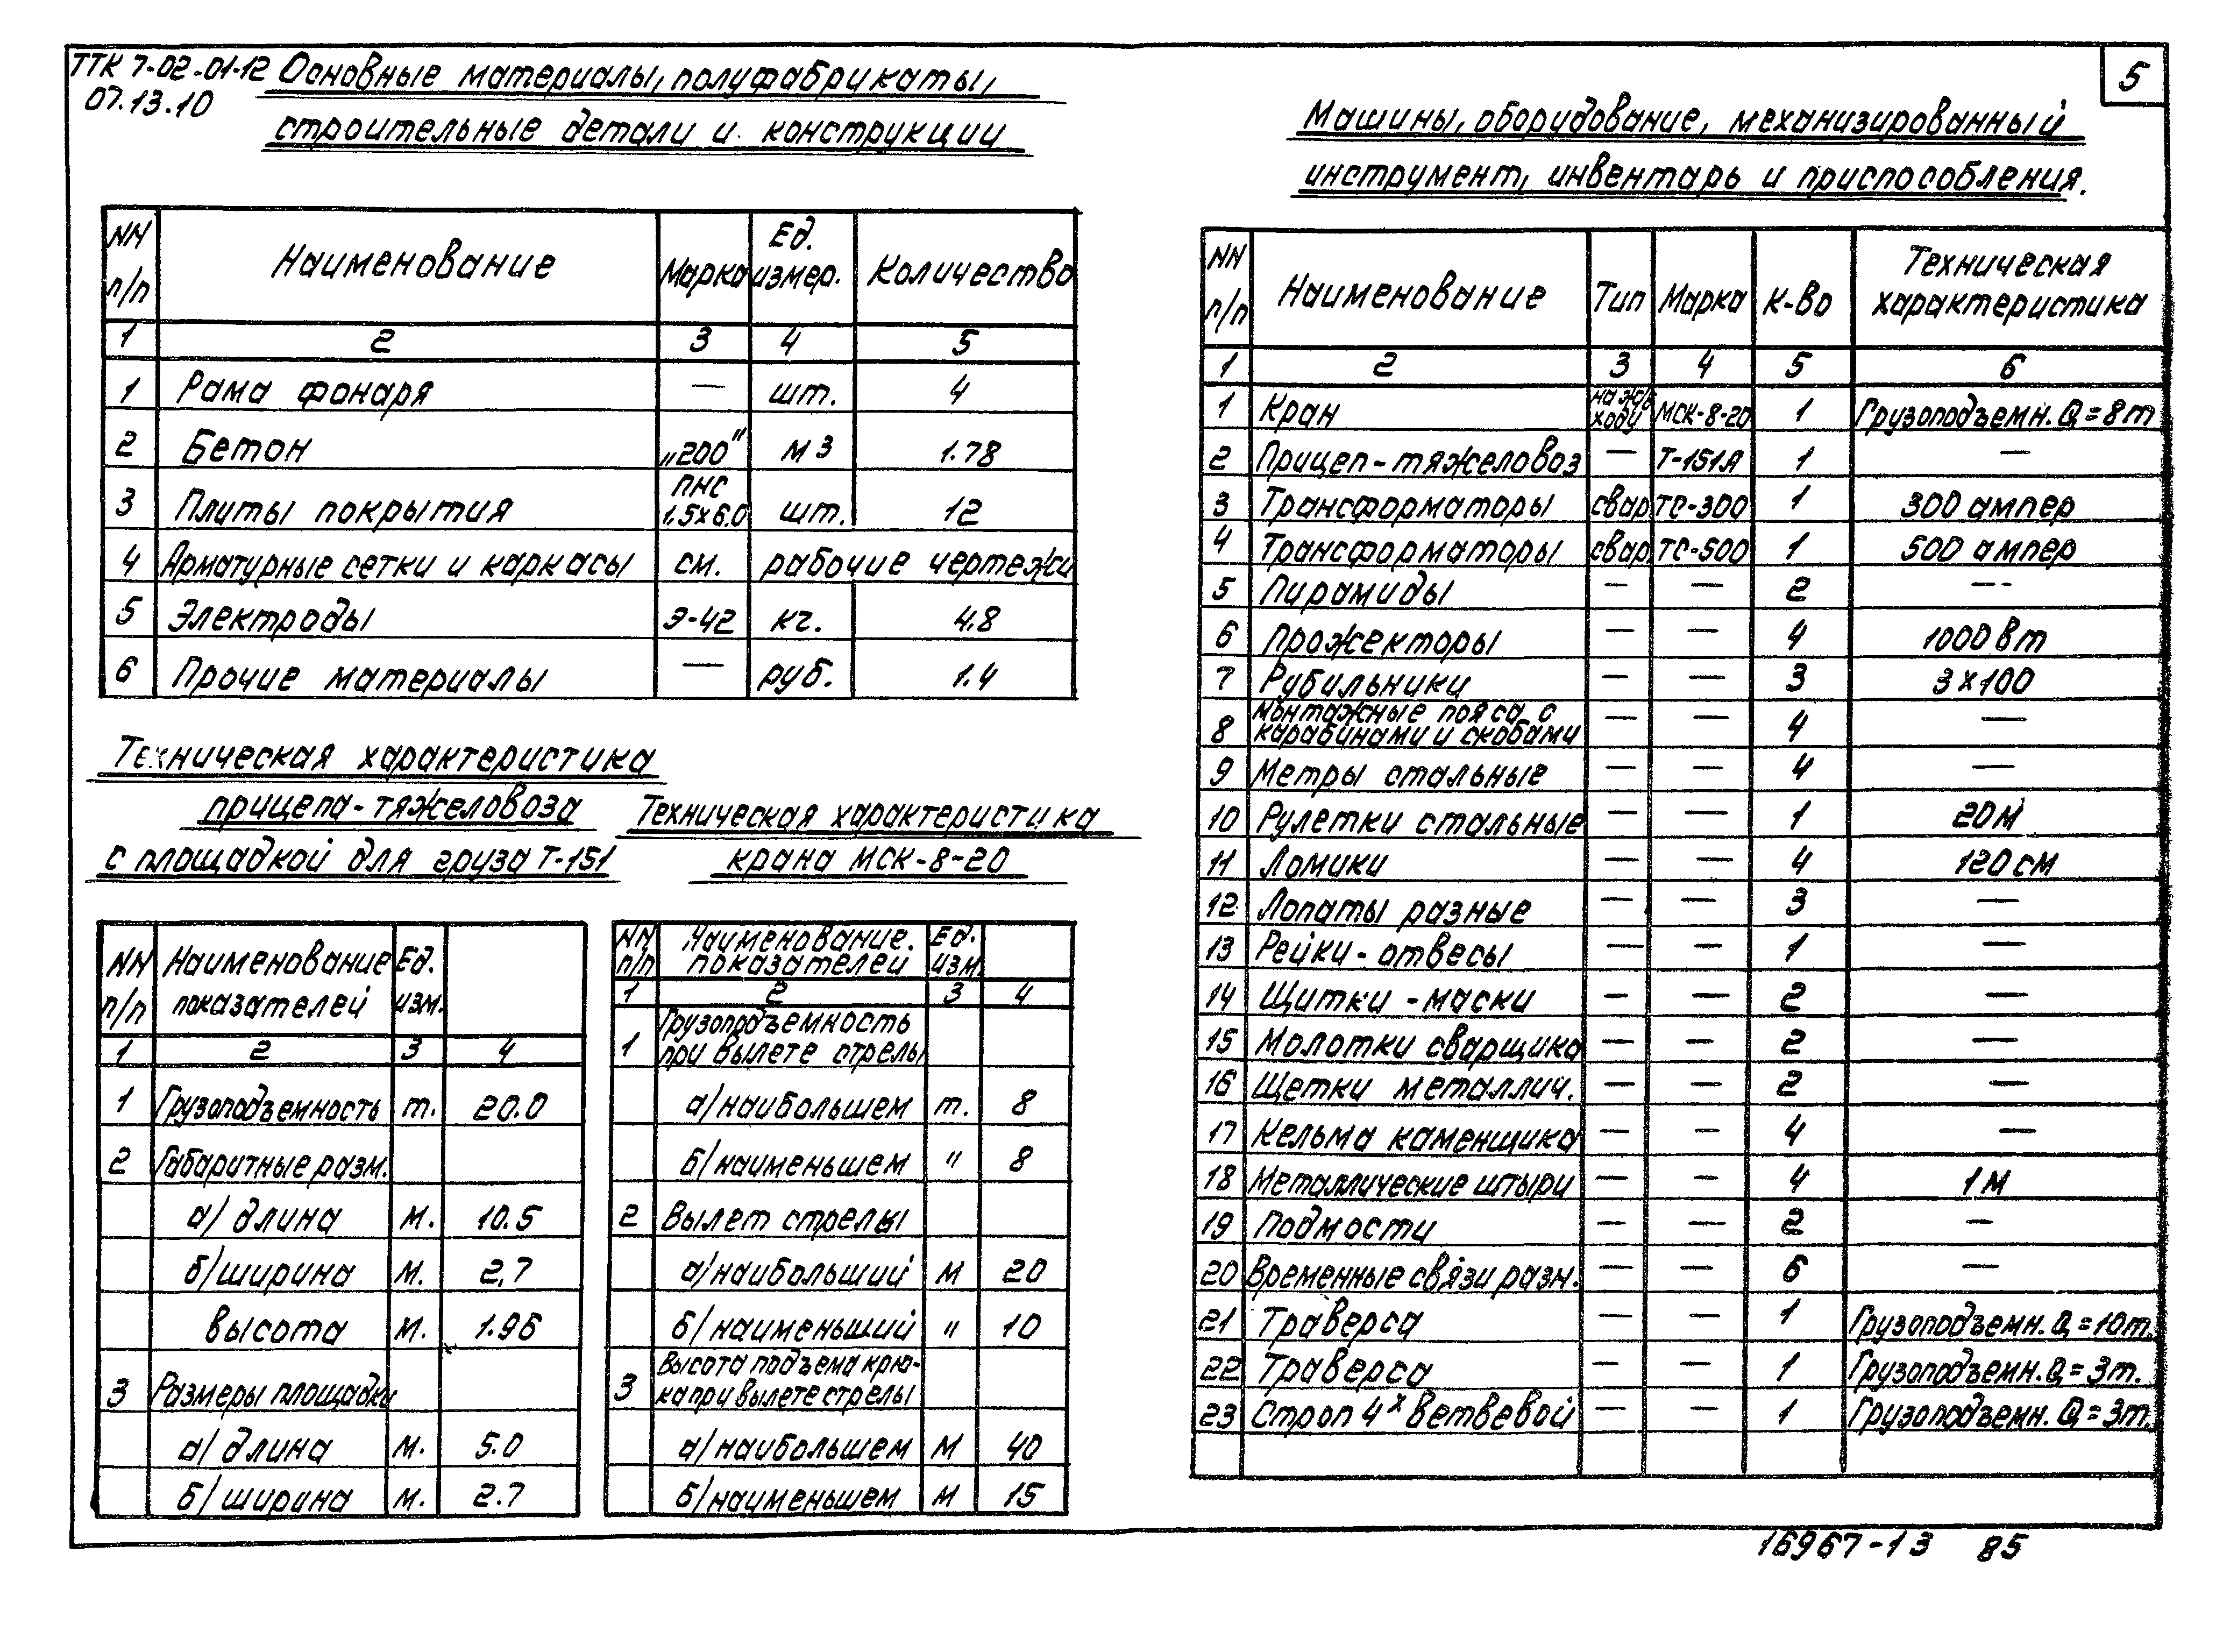 ТТК 7-02-01-12
07.13.10
Основные материалы, полуфабрикаты,
строительные детали и конструкции
NN п/п Наименование Марка Ед. измер. Количество
1 2 3 4 5
1 Рама фонаря — шт. 4
2 Бетон „200" м3 1.78
3 Плиты покрытия ПНС 1,5х6.0 шт. 12
4 Арматурные сетки и каркасы см. рабочие чертежи
5 Электроды Э-42 кг. 4.8
6 Прочие материалы — руб. 1.4
Техническая характеристика
прицепа-тяжеловоза
с площадкой для груза Т-151
NN п/п Наименование показателей Ед. изм.
1 2 3 4
1 Грузоподъемность т. 20.0
2 Габаритные разм.
а/ длина м. 10.5
б/ ширина м. 2,7
высота м. 1.96
3 Размеры площадки
а/ длина м. 5.0
б/ ширина м. 2.7
Техническая характеристика
крана МСК-8-20
NN п/п Наименование. показателей Ед. изм.
1 2 3 4
1 Грузоподъемность
при вылете стрелы
а/ наибольшем т. 8
б/ наименьшем " 8
2 Вылет стрелы
а/ наибольший м 20
б/ наименьший " 10
3 Высота подъема крю-
ка при вылете стрелы
а/ наибольшем м 40
б/ наименьшем м 15
5
Машины, оборудование, механизированный
инструмент, инвентарь и приспособления.
NN п/п Наименование Тип Марка К-во Техническая характеристика
1 2 3 4 5 6
1 Кран на ж/д ходу МСК-8-20 1 Грузоподъемн. Q = 8т
2 Прицеп-тяжеловоз — Т-151А 1 —
3 Трансформаторы свар ТС-300 1 300 ампер
4 Трансформаторы свар. ТС-500 1 500 ампер
5 Пирамиды — — 2 —
6 Прожекторы — — 4 1000 Вт
7 Рубильники — — 3 3х100
8 Монтажные пояса с карабинами и скобами — — 4 —
9 Метры стальные — — 4 —
10 Рулетки стальные — — 1 20м
11 Ломики — — 4 120 см
12 Лопаты разные — — 3 —
13 Рейки-отвесы — — 1 —
14 Щитки-маски — — 2 —
15 Молотки сварщика — — 2 —
16 Щетки металлич. — — 2 —
17 Кельма каменщика — — 4 —
18 Металлические штыри — — 4 1м
19 Подмости — — 2 —
20 Временные связи разн. — — 6 —
21 Траверса — — 1 Грузоподъемн. Q = 10т.
22 Траверса — — 1 Грузоподъемн. Q = 3т.
23 Строп 4х ветвевой — — 1 Грузоподъемн. Q = 3т.
16967-13 85